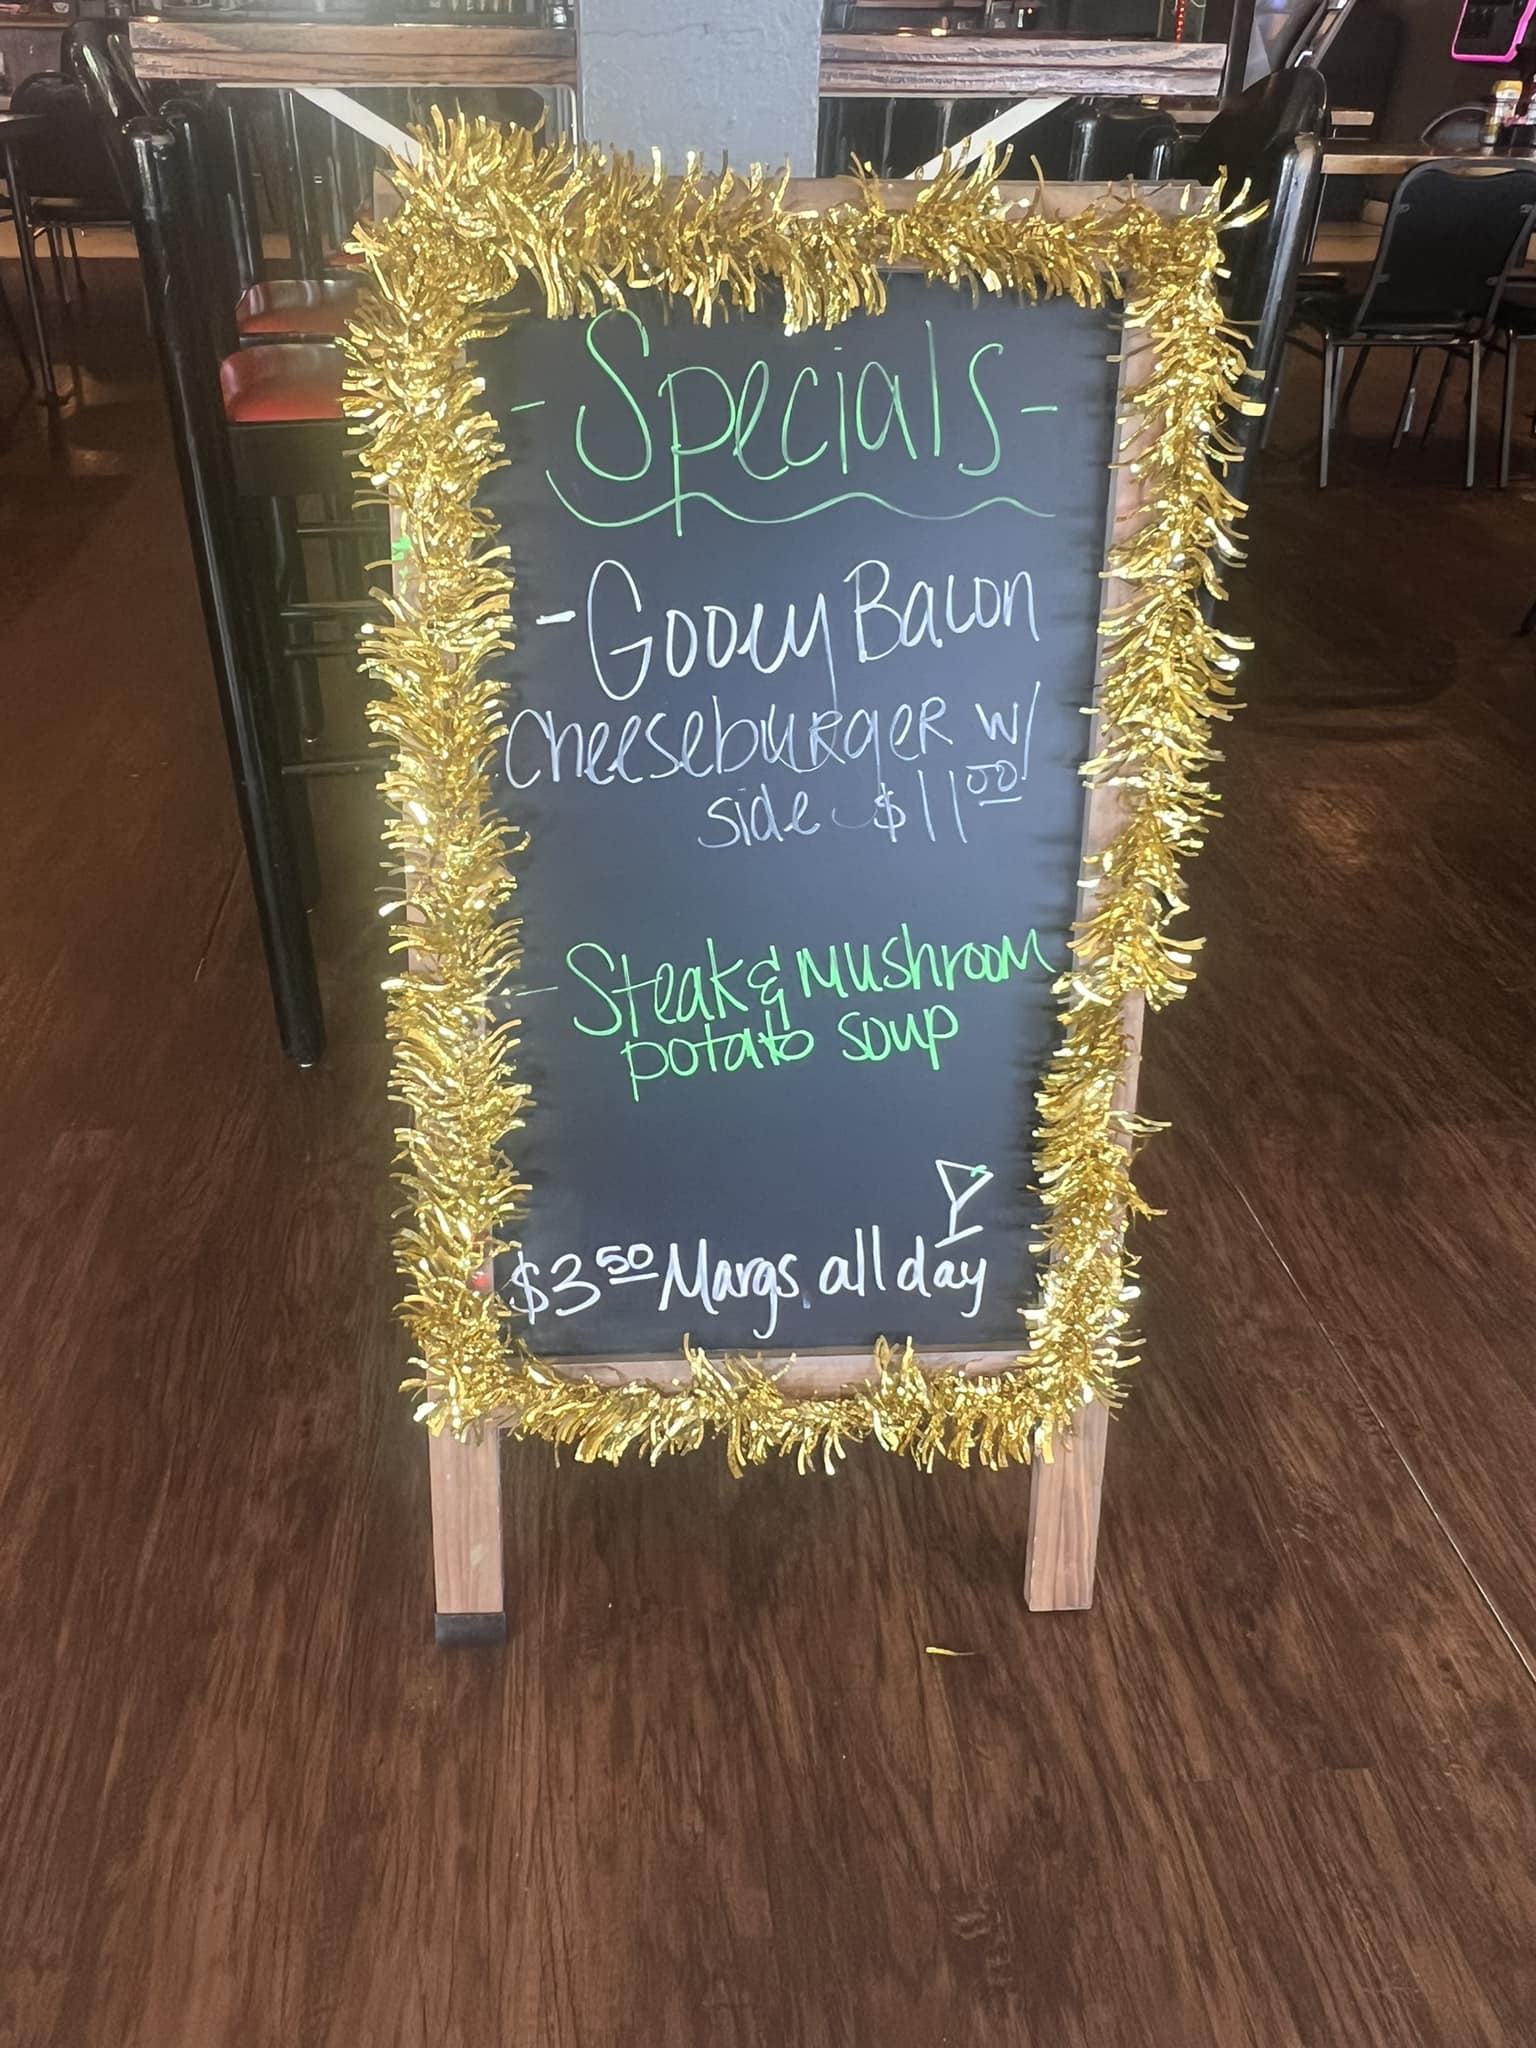 - Specials -
- Gooey Bacon
cheeseburger w/
side $11.00
- Steak & mushroom
potato soup
$3.50 Margs all day